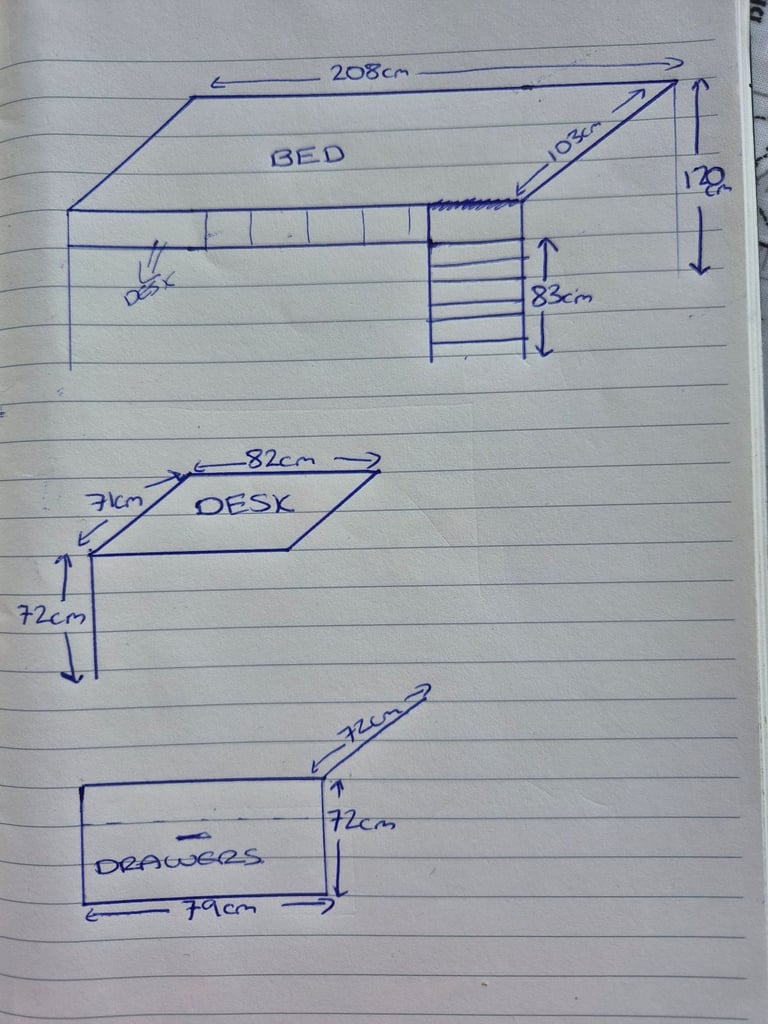 208cm
BED
103cm
120
cm
DESK
83cm
82cm
71cm
DESK
72cm
72cm
72cm
DRAWERS
79cm